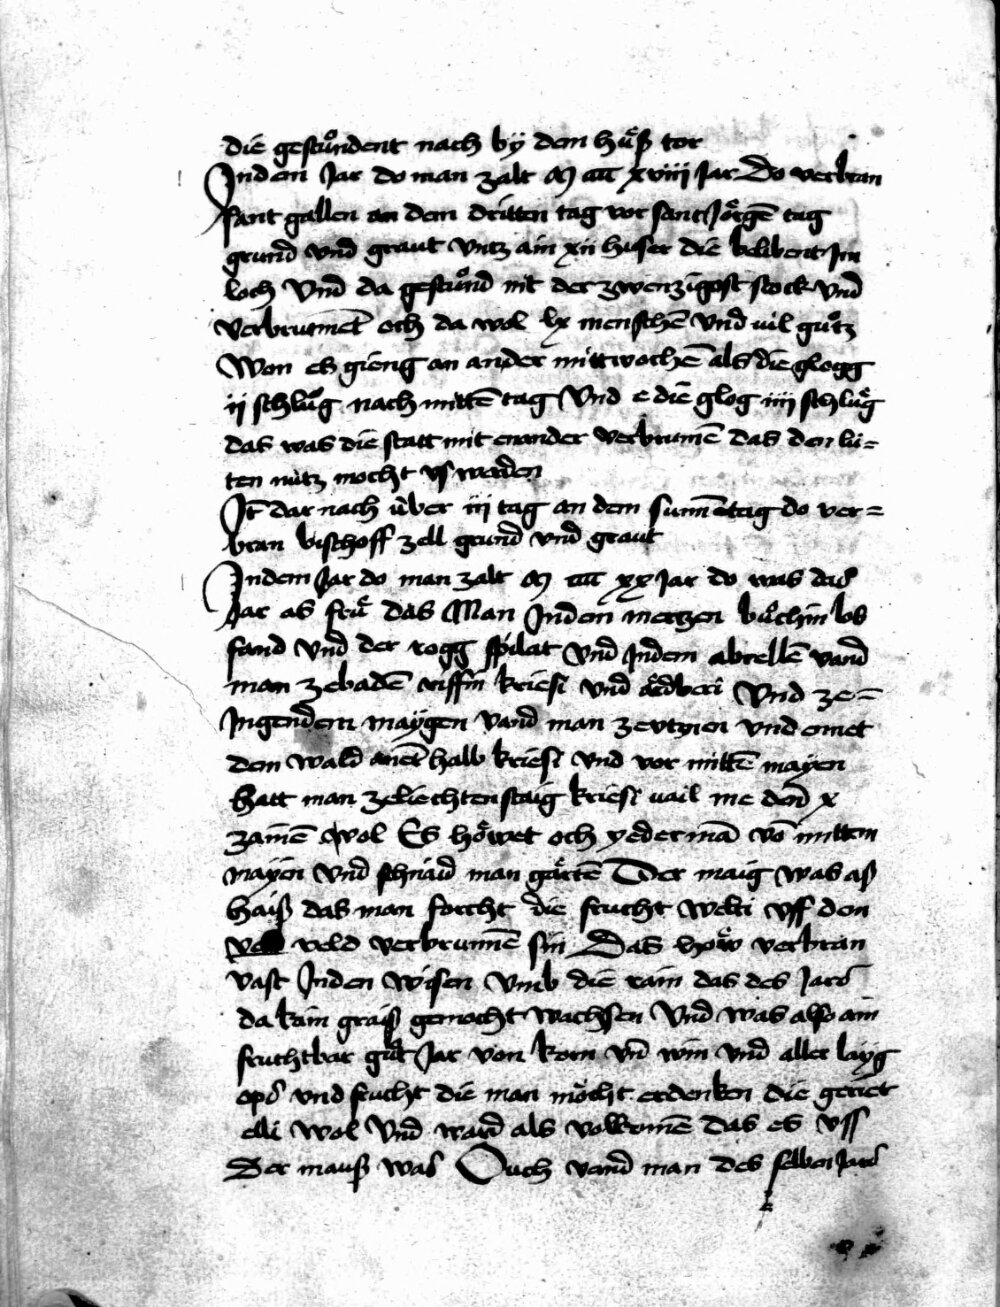 die gestůndent nach by dem hüß tor
Jndem Jar do man zalt M cccc xviii Jar Do verbran
sant gallen an dem dritten tag vor sant Jörgē tag
grund vnd graut vntz ain xii huser die belibent Jm
loch Vnd da gestůnd nit der zwenzigost stock vnd
verbrunnēt och da wol lx menschē vnd vil gůtz
Won es gieng an ander mittwochē als die glogg
ii schlůg nach mittē tag Vnd e die glog iiii schlůg
das was die statt mit enander verbrunnē das den lü=
ten nütz mocht vs werden
Jt̄ dar nach über iii tag an dem sunnētag do ver=
bran bischoff zell grund vnd graut
Jndem Jar do man zalt M cccc xx Jar do was das
Jar as frů das Man Jndem mertzen bůchin los
fand vnd der rogg spilat vnd Jndem abrellē vand
man zebadē riffin kriesi vnd ärdberi Vnd ze=
Jngendem maygen vand man zevtznen vnd emet
dem wald anēt halb kriesi vnd vor mittē mayen
hatt man zeliechtenstaig kriesi vail me den x
zainē wol Es höwet och yederman vō mittem
mayen vnd schnaid man gärtē Der maig was as
haiß das man forcht die frucht welti vff den
veld verbrunnē sin Das höw verbran
vast Jnden wisen vmb die rain das des Jars
da kain graß gemocht wachsen Vnd was also ain
fruchtbar gůt Jar von korn vn̄ win vnd aller layg
ops vnd frucht die man möcht erdenken die geriet
elli wol Vnd ward als volkomē das es vss
Der mauß was Ouch vand man des selben Jars